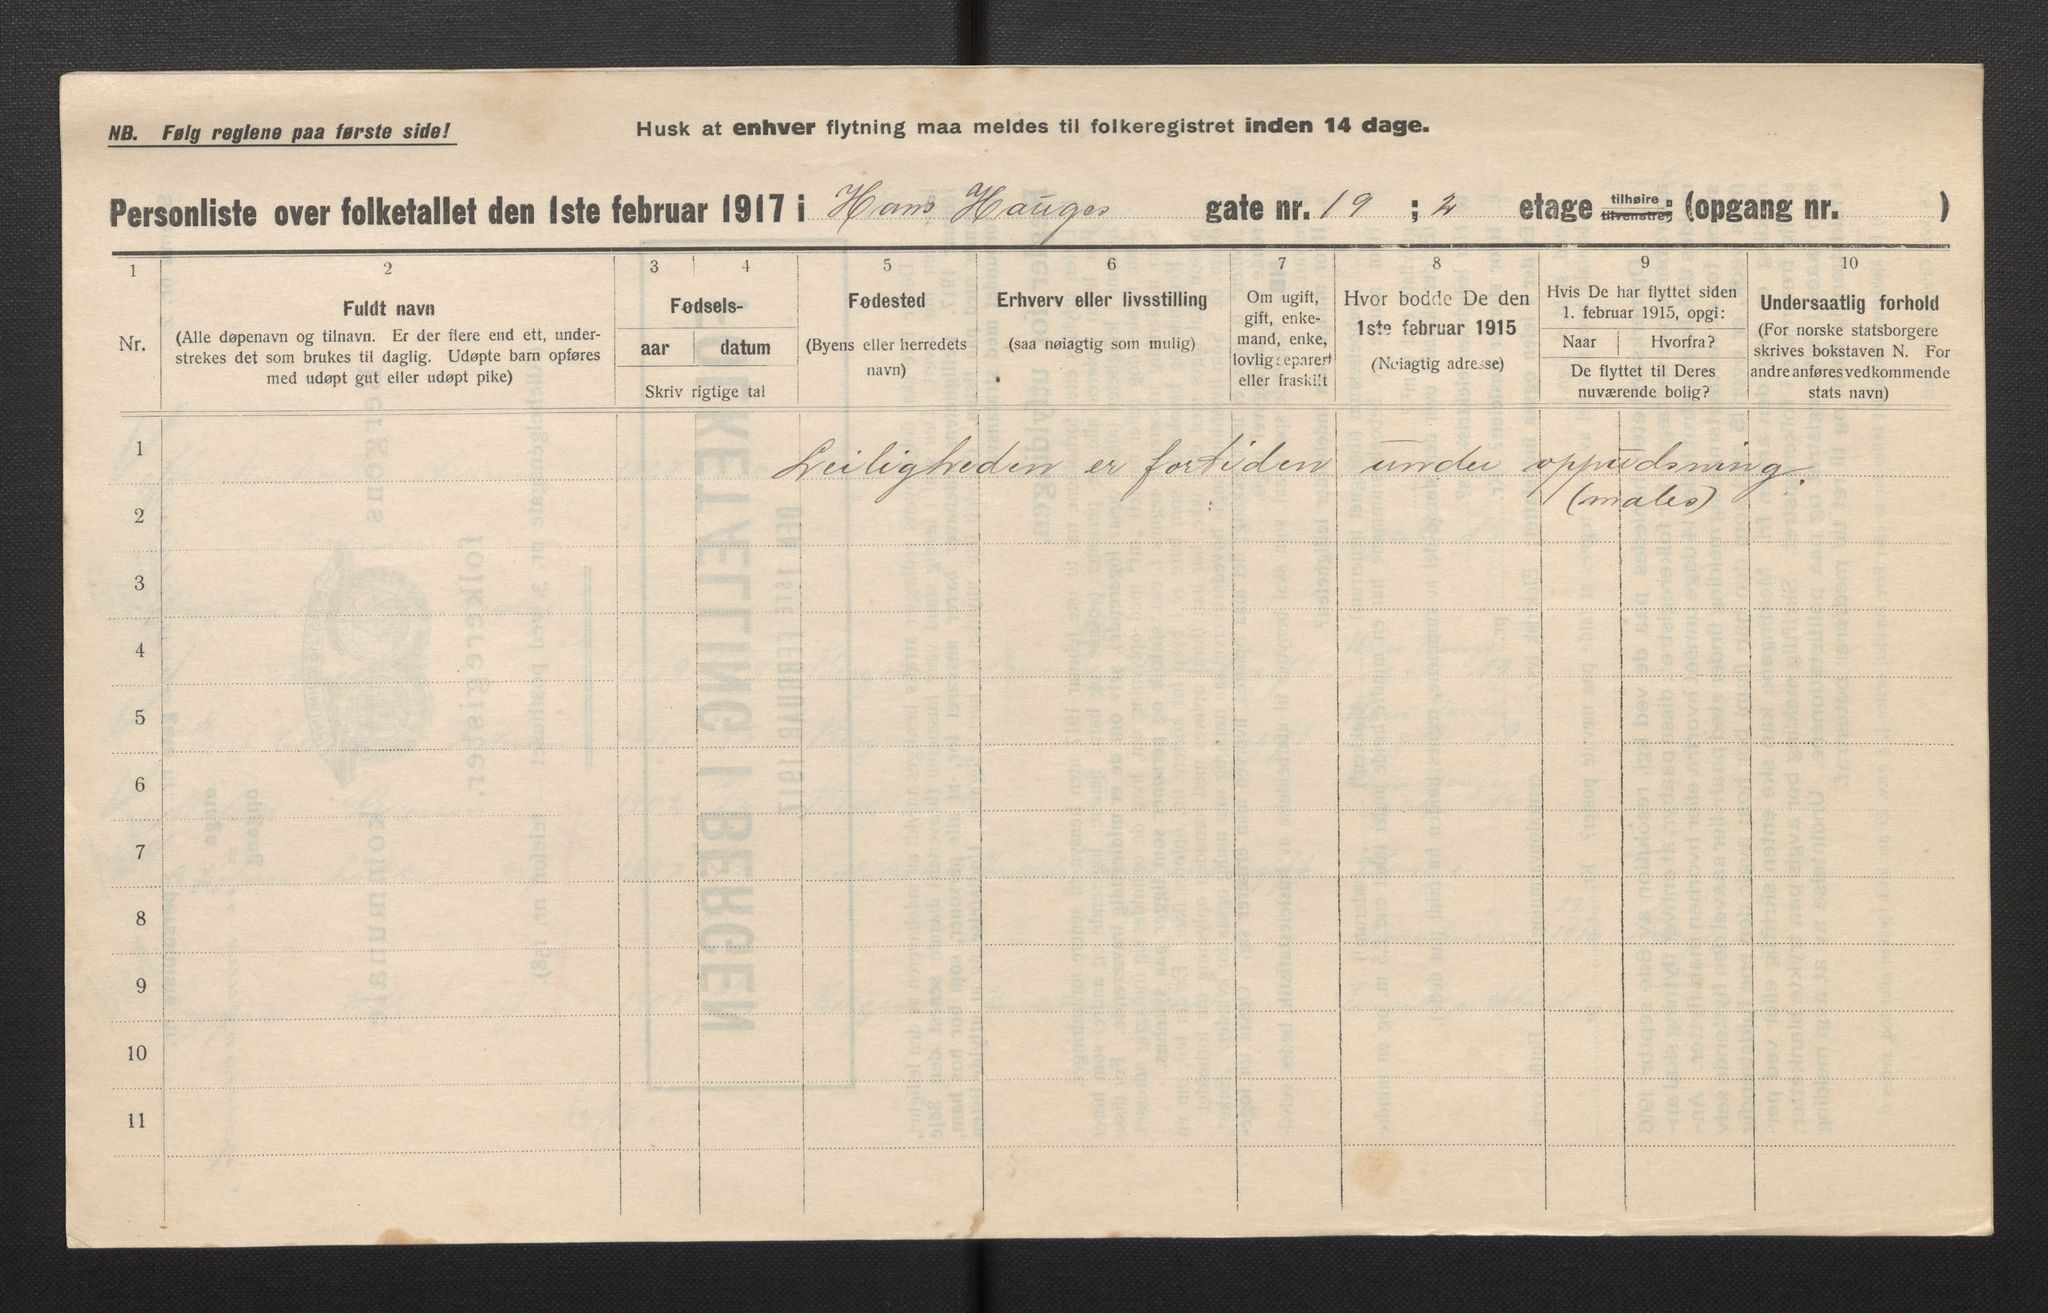 NB. Følg reglene paa første side!
Husk at enhver flytning maa meldes til folkeregistret inden 14 dage.
Personliste over folketallet den 1ste februar 1917 i Hans Hauges gate nr. 19 ; 2 etage tilhøire: tilvenstre: (opgang nr. )
1 2 3 4 5 6 7 8 9 10
Nr.
Fuldt navn
(Alle døpenavn og tilnavn. Er der flere end ett, under-
strekes det som brukes til daglig. Udøpte barn opføres
med udøpt gut eller udøpt pike)
Fødsels-
aar datum
Skriv rigtige tal
Fødested
(Byens eller herredets
navn)
Erhverv eller livsstilling
(saa nøiagtig som mulig)
Om ugift,
gift, enke-
mand, enke,
lovlig separert
eller fraskilt
Hvor bodde De den
1ste februar 1915
(Nøiagtig adresse)
Hvis De har flyttet siden
1. februar 1915, opgi:
Naar Hvorfra?
De flyttet til Deres
nuværende bolig?
Undersaatlig forhold
(For norske statsborgere
skrives bokstaven N. For
andre anføres vedkommende
stats navn)
1 Leiligheden er fortiden under oppudsning.
(males)
2
3
4
5
6
7
8
9
10
11